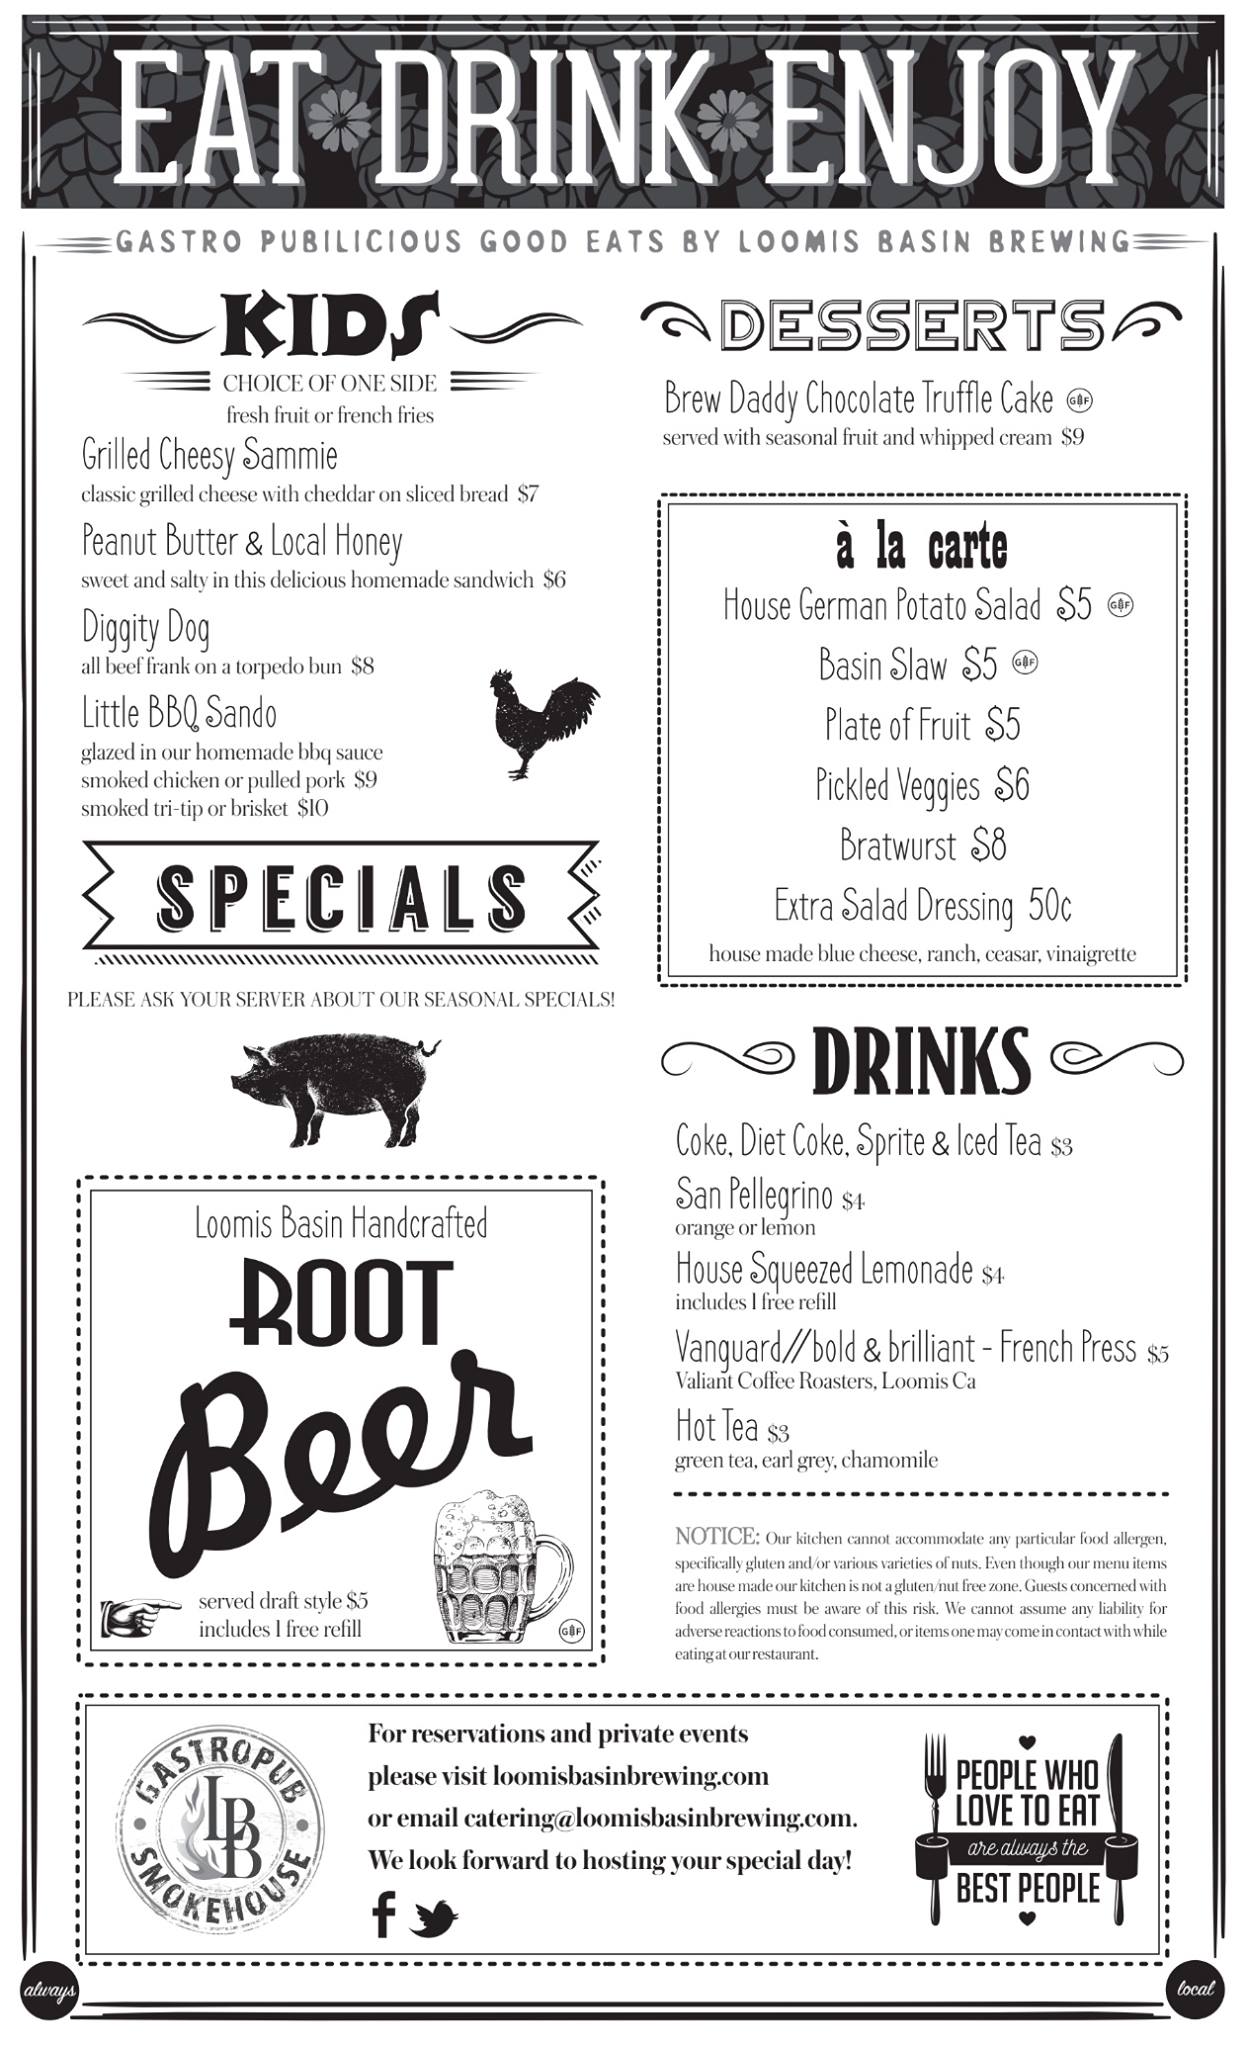 EAT DRINK ENJOY
GASTRO PUBILICIOUS GOOD EATS BY LOOMIS BASIN BREWING
KIDS
CHOICE OF ONE SIDE
fresh fruit or french fries
Grilled Cheesy Sammie
classic grilled cheese with cheddar on sliced bread $7
Peanut Butter & Local Honey
sweet and salty in this delicious homemade sandwich $6
Diggity Dog
all beef frank on a torpedo bun $8
Little BBQ Sando
glazed in our homemade bbq sauce
smoked chicken or pulled pork $9
smoked tri-tip or brisket $10
SPECIALS
PLEASE ASK YOUR SERVER ABOUT OUR SEASONAL SPECIALS!
Loomis Basin Handcrafted
ROOT
Beer
served draft style $5
includes 1 free refill
GF
DESSERTS
Brew Daddy Chocolate Truffle Cake GF
served with seasonal fruit and whipped cream $9
à la carte
House German Potato Salad $5 GF
Basin Slaw $5 GF
Plate of Fruit $5
Pickled Veggies $6
Bratwurst $8
Extra Salad Dressing 50¢
house made blue cheese, ranch, ceasar, vinaigrette
DRINKS
Coke, Diet Coke, Sprite & Iced Tea $3
San Pellegrino $4
orange or lemon
House Squeezed Lemonade $4
includes 1 free refill
Vanguard//bold & brilliant - French Press $5
Valiant Coffee Roasters, Loomis Ca
Hot Tea $3
green tea, earl grey, chamomile
NOTICE: Our kitchen cannot accommodate any particular food allergen,
specifically gluten and/or various varieties of nuts. Even though our menu items
are house made our kitchen is not a gluten/nut free zone. Guests concerned with
food allergies must be aware of this risk. We cannot assume any liability for
adverse reactions to food consumed, or items one may come in contact with while
eating at our restaurant.
GASTROPUB
LBB
SMOKEHOUSE
For reservations and private events
please visit loomisbasinbrewing.com
or email catering@loomisbasinbrewing.com.
We look forward to hosting your special day!
PEOPLE WHO
LOVE TO EAT
are always the
BEST PEOPLE
always
local